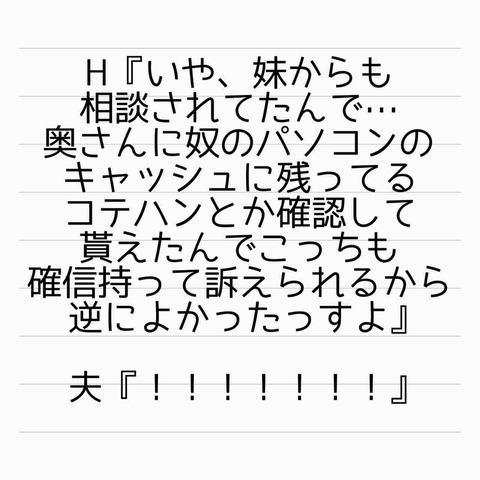 H『いや、妹からも
相談されてたんで…
奥さんに奴のパソコンの
キャッシュに残ってる
コテハンとか確認して
貰えたんでこっちも
確信持って訴えられるから
逆によかったっすよ』
夫『！！！！！！！』